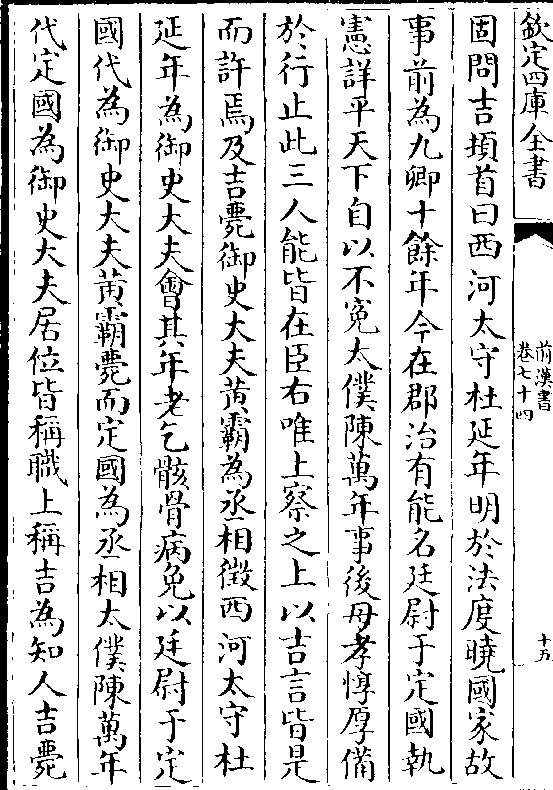 欽定四庫全書
前漢書
卷七十四
十五
固問吉頓首曰西河太守杜延年明於法度曉國家故
事前為九卿十餘年今在郡治有能名廷尉于定國執
憲詳平天下自以不冤太僕陳萬年事後母孝惇厚備
於行止此三人能皆在臣右唯上察之上以吉言皆是
而許焉及吉薨御史大夫黃霸為丞相徵西河太守杜
延年為御史大夫會其年老乞骸骨病免以廷尉于定
國代為御史大夫黃霸薨而定國為丞相太僕陳萬年
代定國為御史大夫居位皆稱職上稱吉為知人吉薨